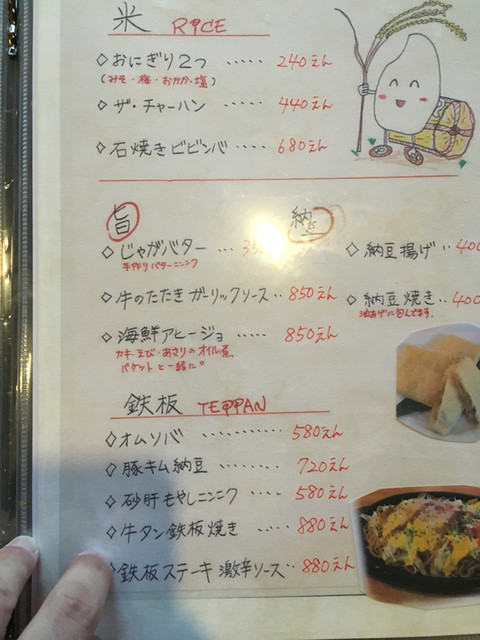 米 RICE
◇おにぎり2つ ····· 240えん
(みそ・梅・おかか・塩)
◇ザ・チャーハン ····· 440えん
◇石焼きビビンバ ····· 680えん
旨
◇じゃがバター ···
手作りバターニンニク
◇牛のたたき ガーリックソース ·· 850えん
◇海鮮アヒージョ ····· 850えん
カキ・えび・あさりのオイル煮、
バケットと一緒に。
納
◇納豆揚げ ··
◇納豆焼き ··
油あげに包んでます。
鉄板 TEPPAN
◇オムソバ ··········· 580えん
◇豚キム納豆 ········ 720えん
◇砂肝もやしニンニク ···· 580えん
◇牛タン鉄板焼き ··· 880えん
◇鉄板ステーキ 激辛ソース ·· 880えん